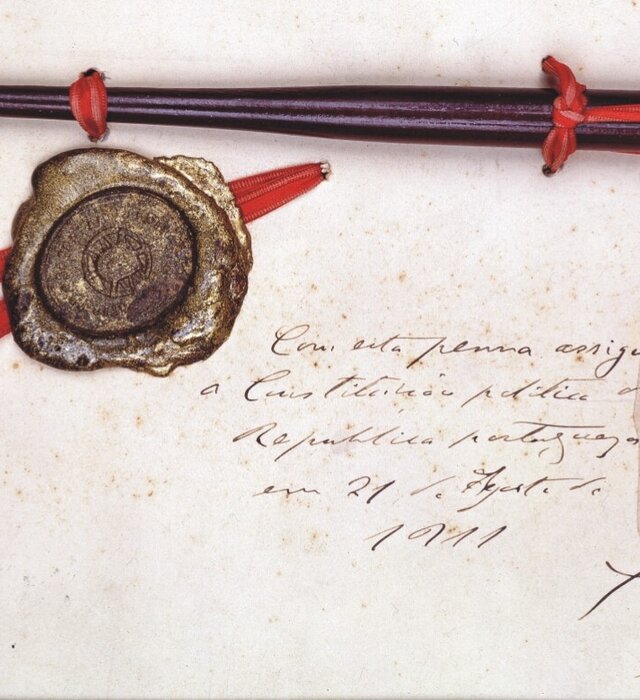 Com esta penna assigu
a Constituição politica d
Republica portugueza
em 21 de Agosto de
1911